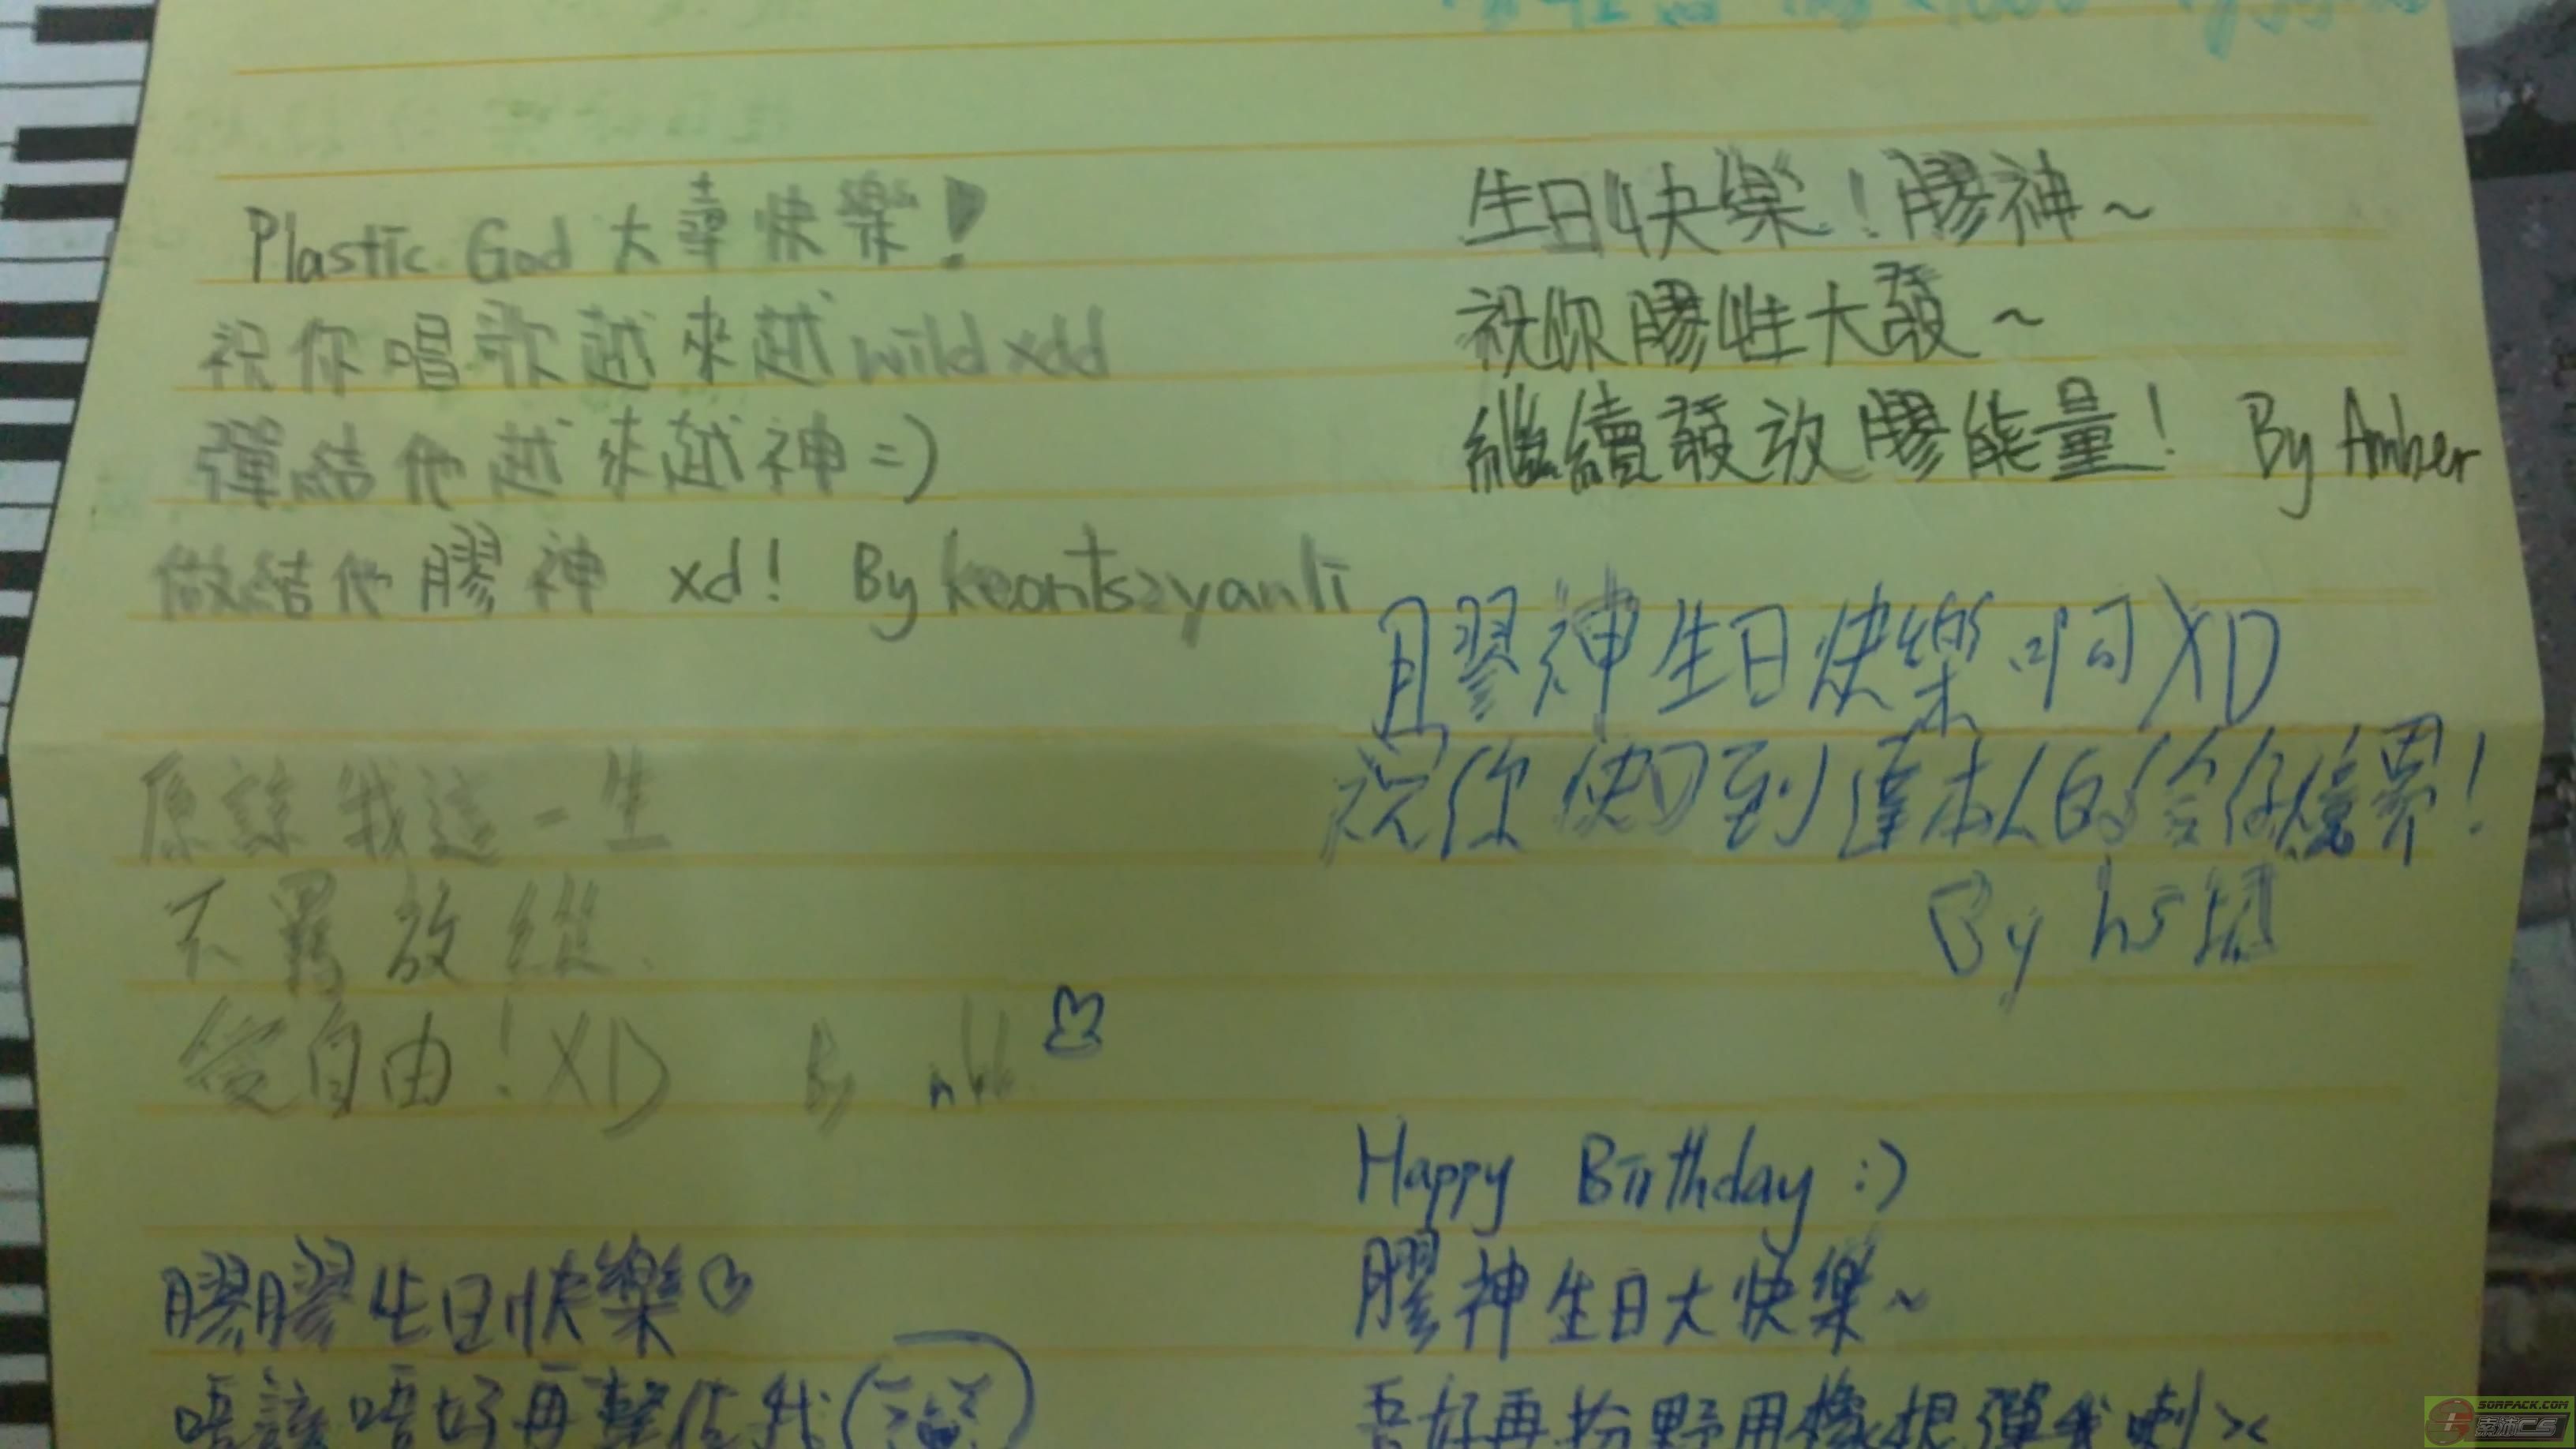 Plastic God 大壽快樂!
祝你唱歌越來越wild xdd
彈結他越來越神=)
做結他膠神 xd! By keontszyanli
生日快樂!膠神~
祝你膠性大發~
繼續發放膠能量! By Amber
膠神生日快樂啊XD
祝你快D到達本人的
境界!
By hs
原諒我這一生
不羈放縱
愛自由!XD By
Happy Birthday :)
膠神生日大快樂~
吾好再扮野用橡根彈我喇><
膠膠生日快樂♡
唔該唔好再整佢我
SORPACK.COM